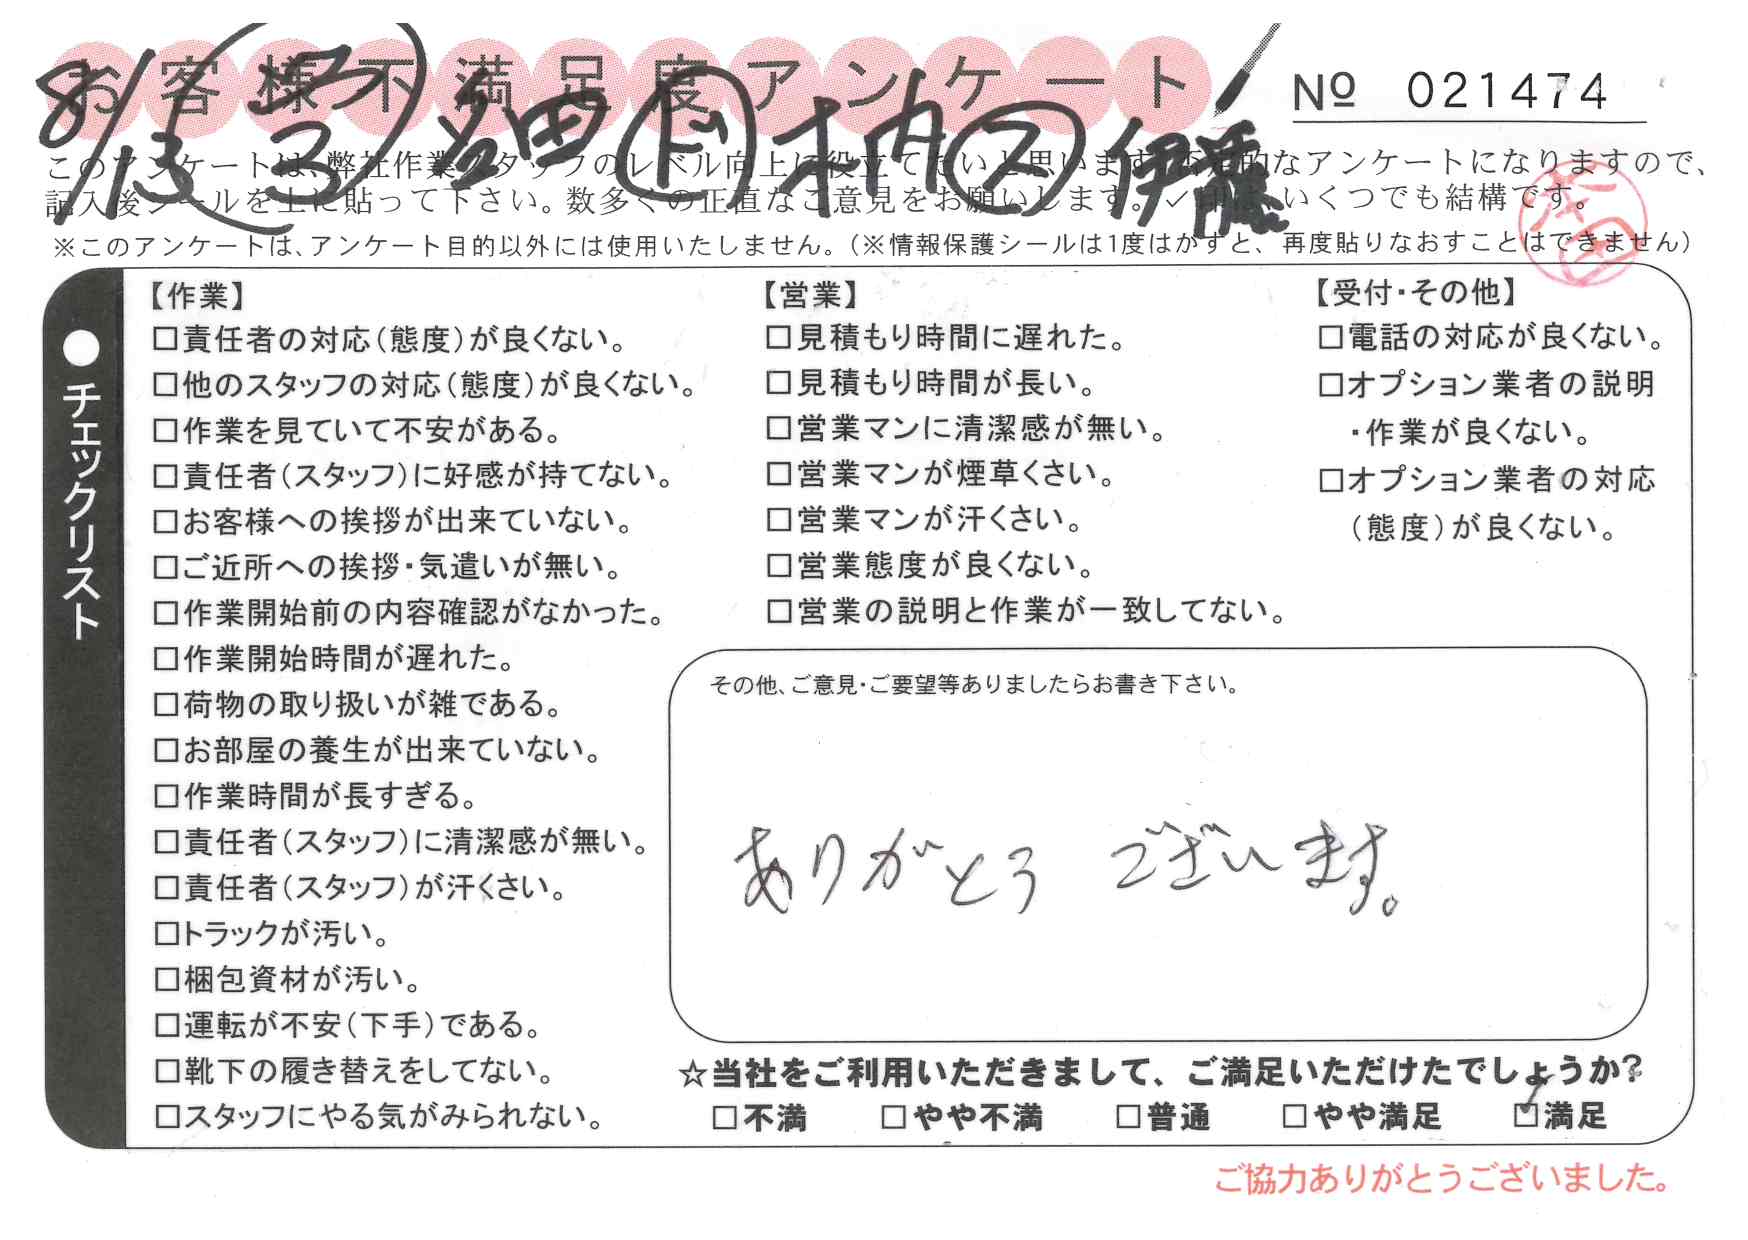 お客様不満足度アンケート
№ 021474
8/13 岩田 ト 木村 ス 伊藤
このアンケートは、弊社作業スタッフのレベル向上に役立てたいと思います。否定的なアンケートになりますので、
記入後シールを上に貼って下さい。数多くの正直なご意見をお願いします。✓印は、いくつでも結構です。
※このアンケートは、アンケート目的以外には使用いたしません。(※情報保護シールは1度はがすと、再度貼りなおすことはできません)
●チェックリスト
【作業】
□責任者の対応(態度)が良くない。
□他のスタッフの対応(態度)が良くない。
□作業を見ていて不安がある。
□責任者(スタッフ)に好感が持てない。
□お客様への挨拶が出来ていない。
□ご近所への挨拶・気遣いが無い。
□作業開始前の内容確認がなかった。
□作業開始時間が遅れた。
□荷物の取り扱いが雑である。
□お部屋の養生が出来ていない。
□作業時間が長すぎる。
□責任者(スタッフ)に清潔感が無い。
□責任者(スタッフ)が汗くさい。
□トラックが汚い。
□梱包資材が汚い。
□運転が不安(下手)である。
□靴下の履き替えをしてない。
□スタッフにやる気がみられない。
【営業】
□見積もり時間に遅れた。
□見積もり時間が長い。
□営業マンに清潔感が無い。
□営業マンが煙草くさい。
□営業マンが汗くさい。
□営業態度が良くない。
□営業の説明と作業が一致してない。
【受付・その他】
□電話の対応が良くない。
□オプション業者の説明
・作業が良くない。
□オプション業者の対応
(態度)が良くない。
その他、ご意見・ご要望等ありましたらお書き下さい。
ありがとう ございます。
☆当社をご利用いただきまして、ご満足いただけたでしょうか?
□不満 □やや不満 □普通 □やや満足 ☑満足
ご協力ありがとうございました。